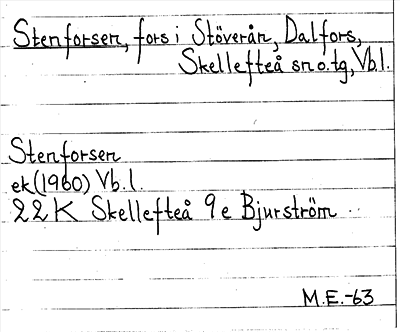 Stenforsen, fors i Stöverån, Dalfors,
Skellefteå sn o. tg, Vb.l.
Stenforsen
ek(1960) Vb.l.
22K Skellefteå 9e Bjurström
M.E.-63